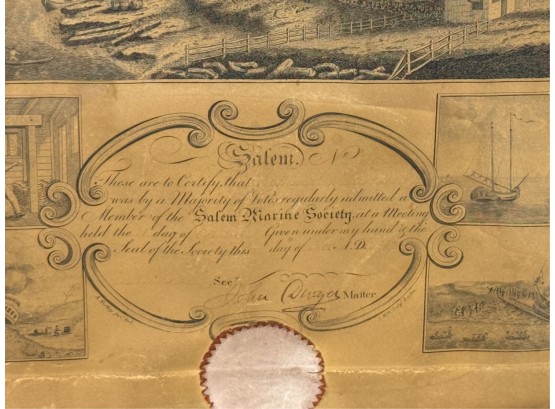 Salem. No
These are to Certify, that
was by a Majority of Votes regularly admitted a
Member of the Salem Marine Society, at a Meeting
held the day of Given under my hand & the
Seal of the Society this day of A.D.
Secy
John Master